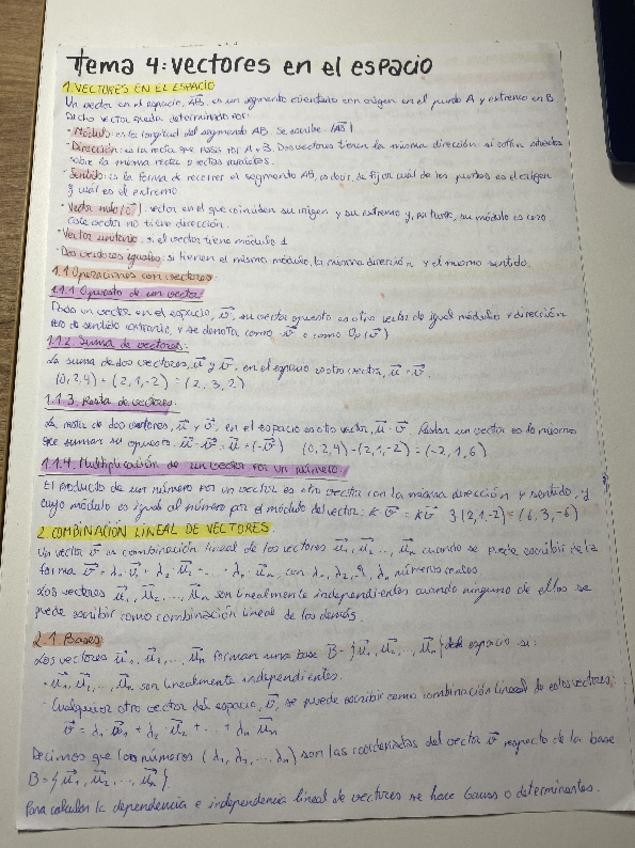 Tema 4: vectores en el espacio
1. VECTORES EN EL ESPACIO
Un vector en el espacio, AB, es un segmento orientado con origen en el punto A y extremo en B
Dicho vector queda determinado por:
· Módulo: es la longitud del segmento AB. Se escribe |AB|
· Dirección: es la recta que pasa por A y B. Dos vectores tienen la misma dirección si están situados
sobre la misma recta o rectas paralelas.
· Sentido: es la forma de recorrer el segmento AB, es decir, se fijar cuál de los puntos es el origen
y cuál es el extremo
· Vector nulo (0): vector en el que coinciden su origen y su extremo y, por tanto, su módulo es cero
Este vector no tiene dirección.
· Vector unitario: si el vector tiene módulo 1
· Dos vectores iguales: si tienen el mismo módulo, la misma dirección y el mismo sentido.
1.1 Operaciones con vectores
1.1.1 Opuesto de un vector
Dado un vector en el espacio, v⃗, su vector opuesto es otro vector de igual módulo y dirección
pero de sentido contrario, y se denota como -v⃗ o como Op(v⃗)
1.1.2. Suma de vectores:
La suma de dos vectores, u⃗ y v⃗, en el espacio es otro vector, u⃗ + v⃗.
(0,2,4) + (2,1,-2) = (2,3,2)
1.1.3. Resta de vectores.
La resta de dos vectores, u⃗ y v⃗, en el espacio es otro vector, u⃗ - v⃗. Restar un vector es lo mismo
que sumar su opuesto. u⃗ - v⃗ = u⃗ + (-v⃗) (0,2,4) - (2,1,-2) = (-2,1,6)
1.1.4. Multiplicación de un vector por un número.
El producto de un número por un vector es otro vector con la misma dirección y sentido, y
cuyo módulo es igual al número por el módulo del vector: k v⃗ = k v⃗ 3(2,1,-2) = (6,3,-6)
2. COMBINACIÓN LINEAL DE VECTORES.
Un vector v⃗ es combinación lineal de los vectores u⃗₁, u⃗₂, ..., u⃗ₙ cuando se puede escribir de la
forma v⃗ = λ₁ u⃗₁ + λ₂ u⃗₂ + ... + λₙ u⃗ₙ, con λ₁, λ₂, λₙ números reales
Los vectores u⃗₁, u⃗₂, ..., u⃗ₙ son linealmente independientes cuando ninguno de ellos se
puede escribir como combinación lineal de los demás.
2.1. Bases
Los vectores u⃗₁, u⃗₂, ..., u⃗ₙ forman una base B = {u⃗₁, u⃗₂, ..., u⃗ₙ} del espacio si:
· u⃗₁, u⃗₂, ..., u⃗ₙ son linealmente independientes.
· Cualquier otro vector del espacio, v⃗, se puede escribir como combinación lineal de estos vectores:
v⃗ = λ₁ u⃗₁ + λ₂ u⃗₂ + ... + λₙ u⃗ₙ
Decimos que los números (λ₁, λ₂, ... λₙ) son las coordenadas del vector v⃗ respecto de la base
B = {u⃗₁, u⃗₂, ..., u⃗ₙ}
Para calcular la dependencia e independencia lineal de vectores se hace Gauss o determinantes.